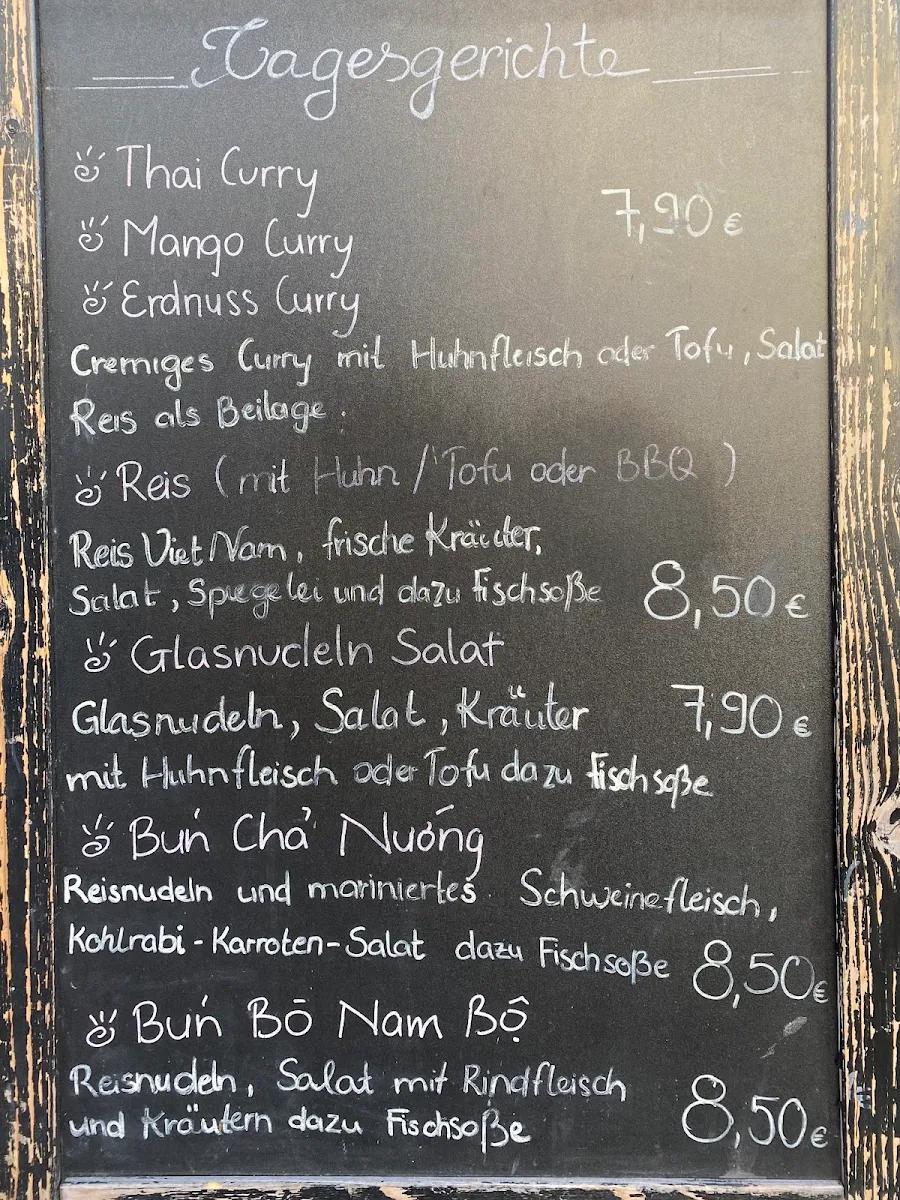 Tagesgerichte
Thai Curry
7,90 €
Mango Curry
Erdnuss Curry
Cremiges Curry mit Huhnfleisch oder Tofu, Salat
Reis als Beilage.
Reis (mit Huhn / Tofu oder BBQ)
Reis Viet Nam, frische Kräuter,
Salat, Spiegelei und dazu Fischsoße 8,50 €
Glasnudeln Salat
Glasnudeln, Salat, Kräuter 7,90 €
mit Huhnfleisch oder Tofu dazu Fischsoße
Buń Chả Nướng
Reisnudeln und mariniertes Schweinefleisch,
Kohlrabi-Karroten-Salat dazu Fischsoße 8,50 €
Buń Bō Nam Bộ
Reisnudeln, Salat mit Rindfleisch
und Kräutern dazu Fischsoße 8,50 €